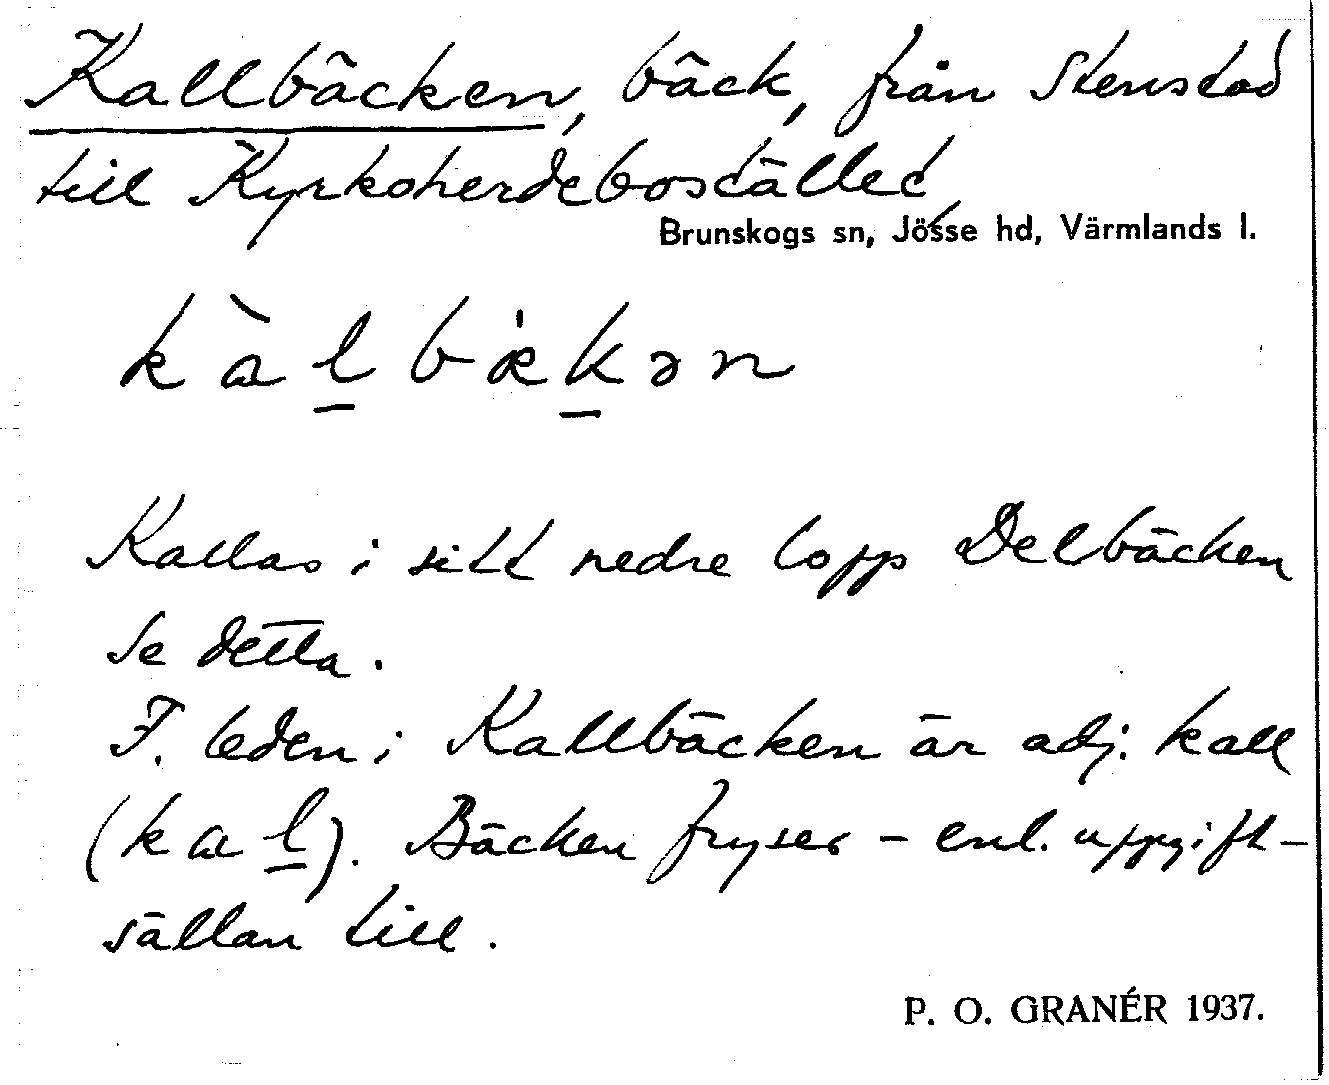 Kallbäcken, bäck, från Stenstad
till Kyrkoherdebostället
Brunskogs sn, Jösse hd, Värmlands l.
kàl̠bæ̀k̠ən
Kallas i sitt nedre lopp Delbäcken
se detta.
F. leden i Kallbäcken är adj. kall
(kal̠). Bäcken fryser – enl. uppgift –
sällan till.
P. O. GRANÉR 1937.